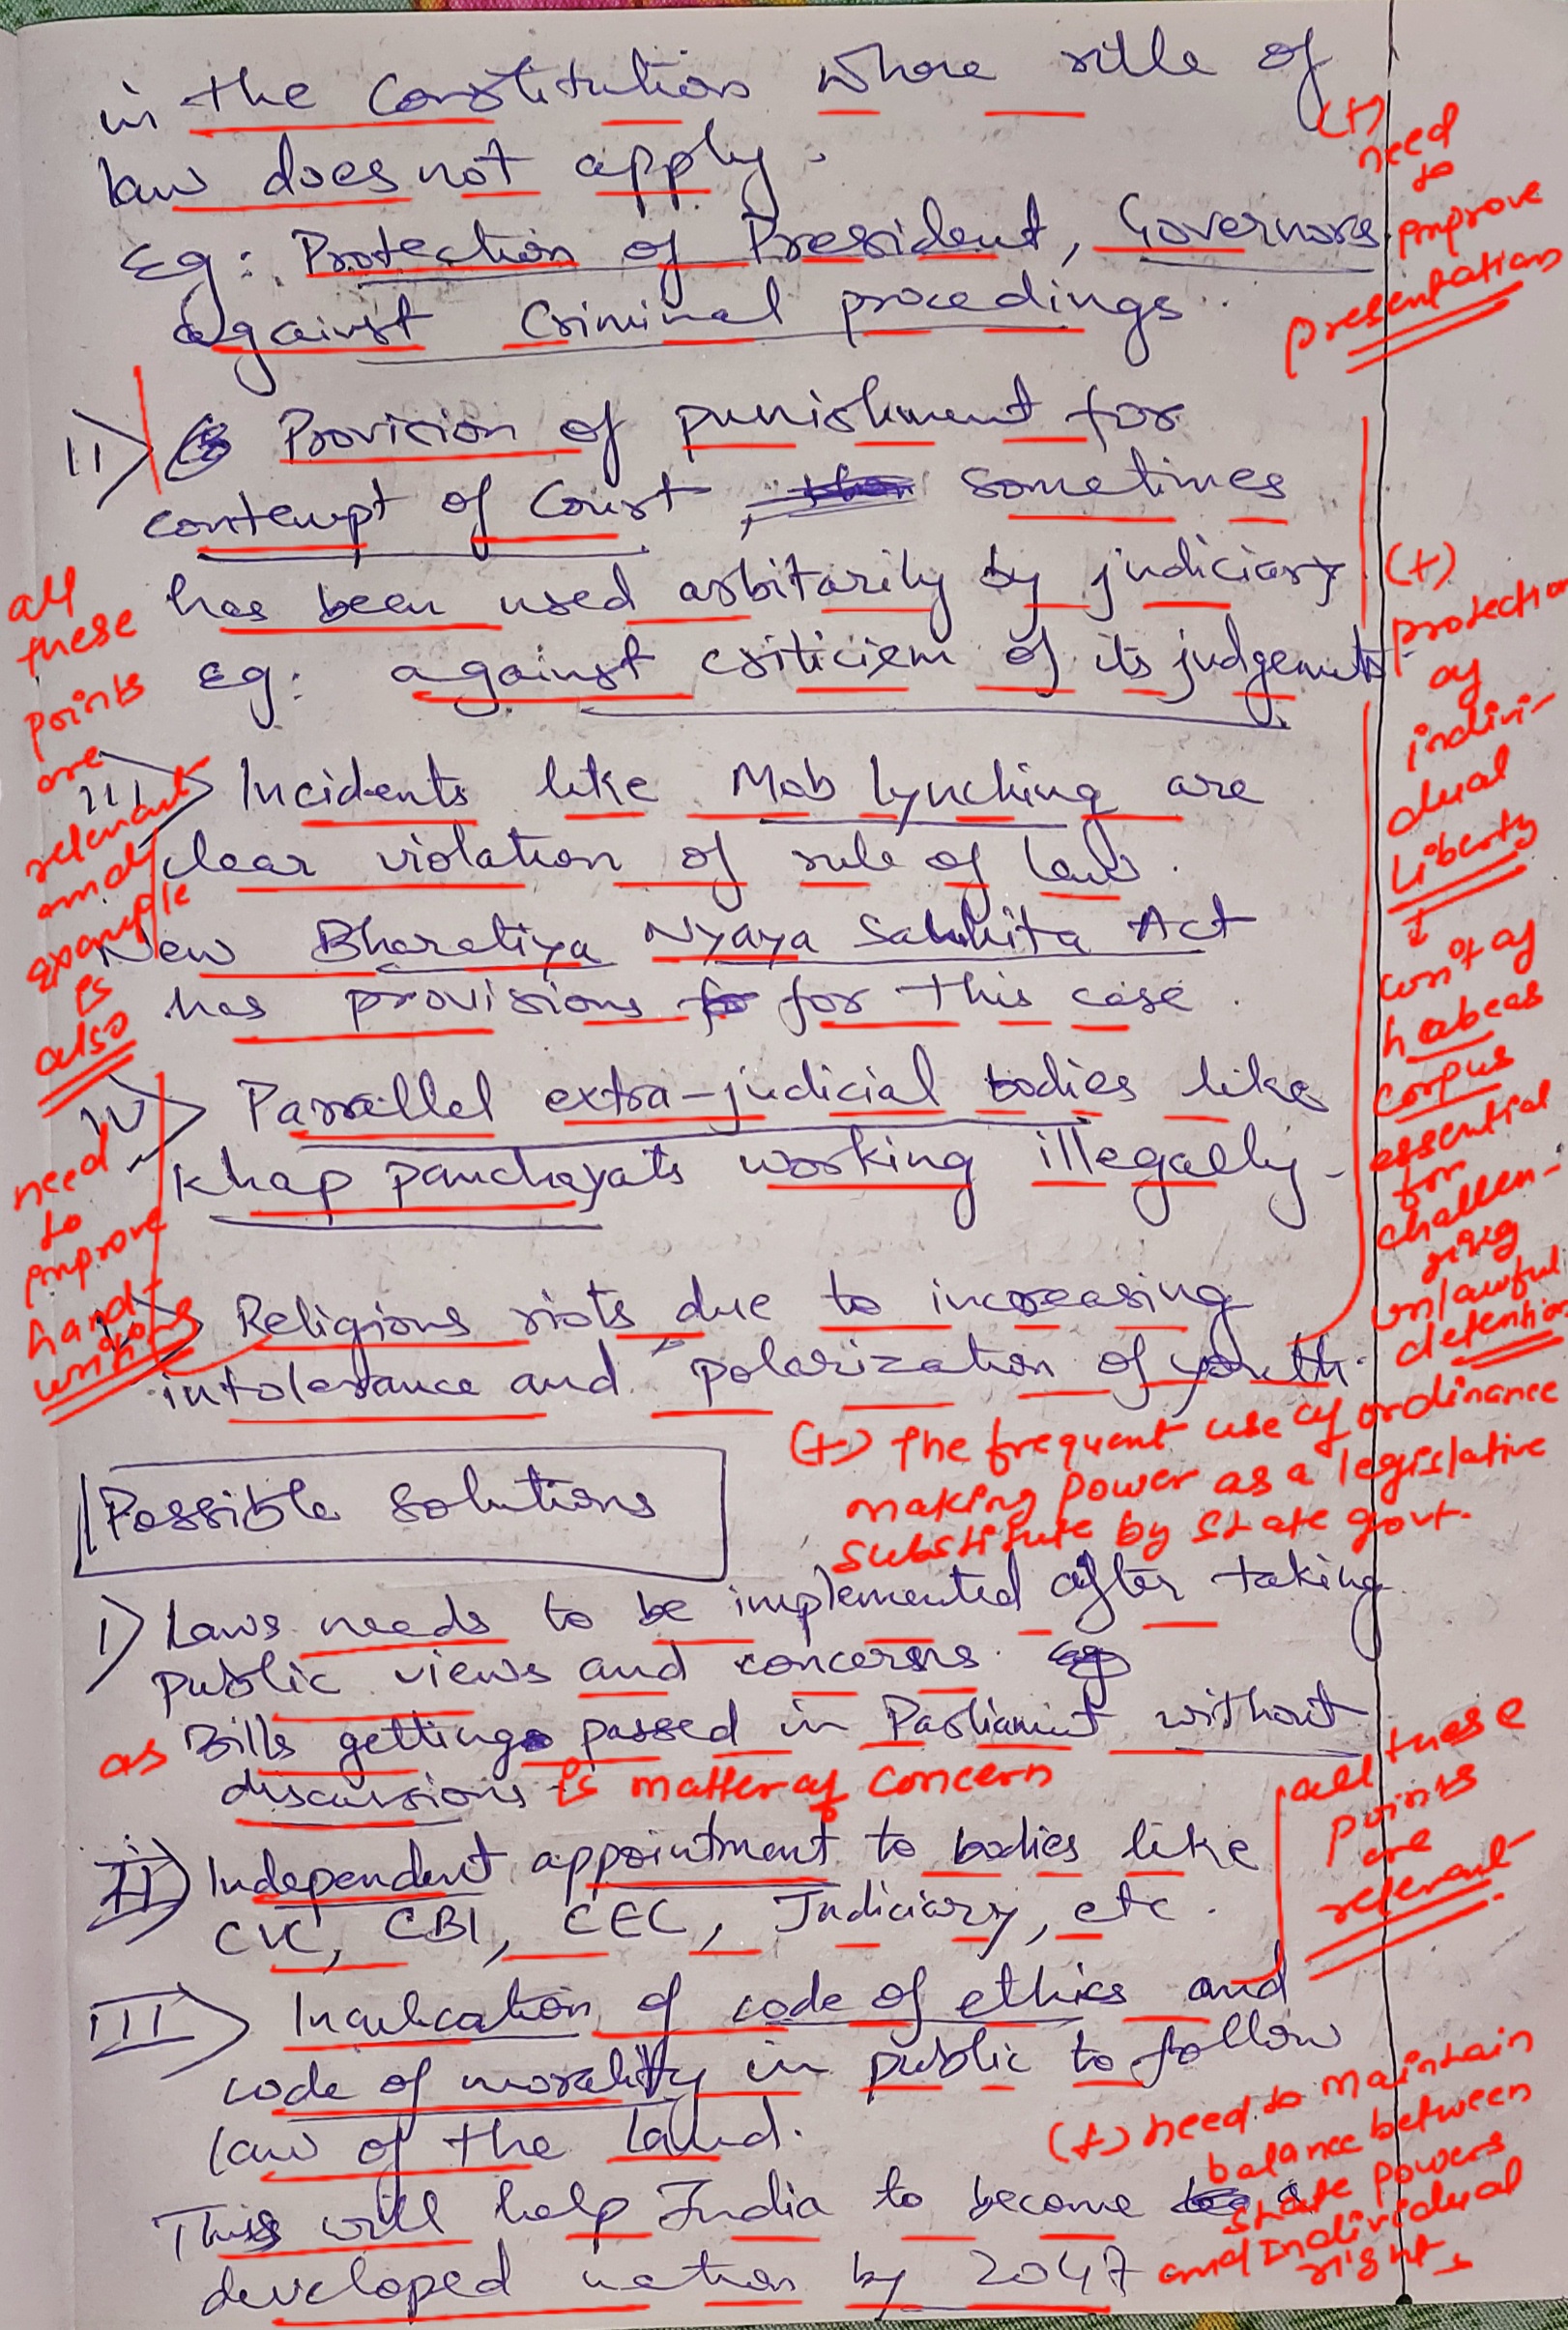 in the Constitution where rule of
law does not apply.
Eg: Protection of President, Governors
against Criminal procedings.
(+)
need
to
improve
presentation
II) Provision of punishment for
contempt of Court, sometimes
has been used arbitarily by judiciary
Eg: against criticism of its judgements.
all
these
points
are
relevant
and
example
is
also
III) Incidents like Mob lynching are
clear violation of rule of law.
New Bharatiya Nyaya Sanhita Act
has provisions for this case.
(+)
protection
of
indivi-
dual
Liberty
↓
writ of
habeas
corpus
essential
for
challen-
ging
unlawful
detention
IV) Parallel extra-judicial bodies like
Khap panchayats working illegally.
need
to
improve
hand-
writing
V) Religious riots due to increasing
intolerance and polarization of youth.
(+) The frequent use of ordinance
making power as a legislative
substitute by State govt.
Possible solutions
I) Laws needs to be implemented after taking
public views and concerns. Eg
as Bills getting passed in Parliament without
discussions is matter of concern
II) Independent appointment to bodies like
CVC, CBI, CEC, Judiciary, etc.
all these
points
are
relevant
III) Inculcation of code of ethics and
code of morality in public to follow
law of the land.
This will help India to become a
developed nation by 2047
(+) need to maintain
balance between
state powers
and Individual
rights